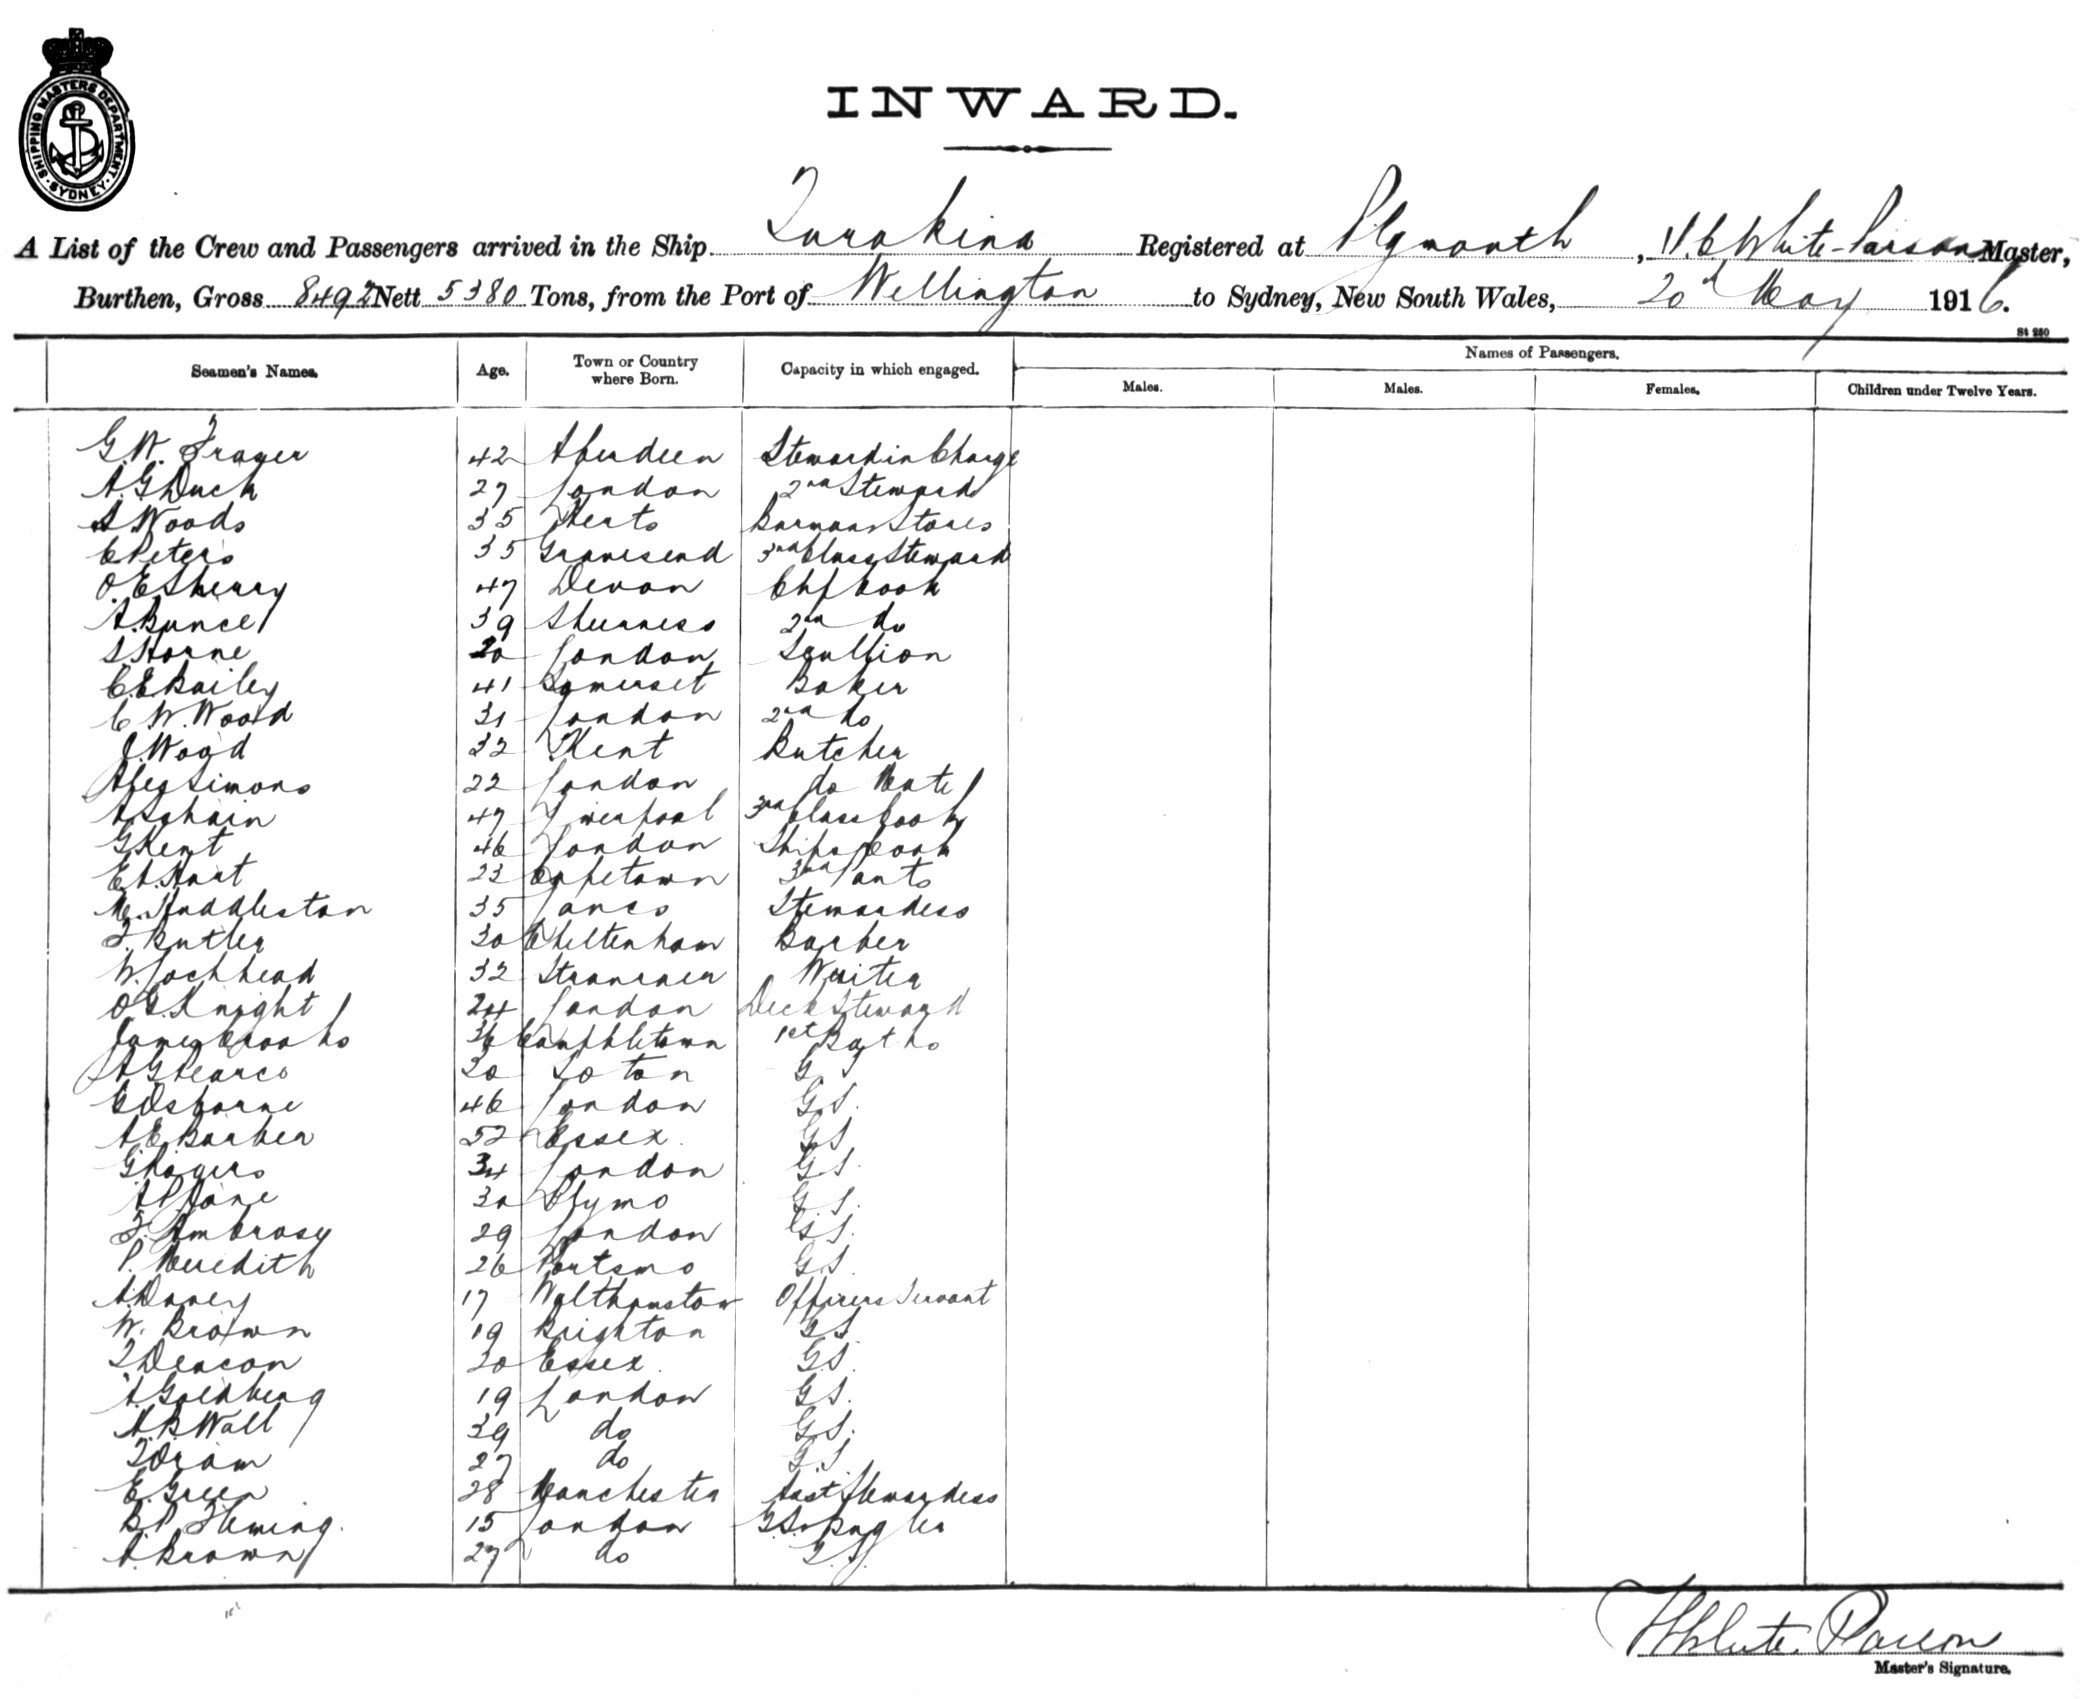 SHIPPING MASTERS DEPARTMENT. SYDNEY.
INWARD.
A List of the Crew and Passengers arrived in the Ship Turakina Registered at Plymouth, White-Parsons Master,
Burthen, Gross 8492 Nett 5380 Tons, from the Port of Wellington to Sydney, New South Wales, 20th May 1916.
St 250
Seamen's Names. Age. Town or Country where Born. Capacity in which engaged. Names of Passengers.
Males. Males. Females. Children under Twelve Years.
G.W. Frazer 42 Aberdeen Steward in Charge
A.G. Duck 27 London 2nd Steward
S Woods 35 Herts Barman Stores
C Peters 35 Gravesend 3rd Class Steward
O.E. Sherry 47 Devon Chf Cook
A. Bunce 39 Sheerness 2nd do
S Horne 20 London Scullion
C.E. Bailey 41 Somerset Baker
C.W. Wood 31 London 2nd do
J. Wood 32 Kent Butcher
Simons 22 London do Mate
A 47 Liverpool 3rd Class Cook
G Kent 46 London Ships Cook
E.A. Hart 23 Capetown 3rd Pants
M. Huddleston 35 Lancs Stewardess
F. Butler 30 Cheltenham Barber
W. Lochhead 32 Stranraer Writer
O.G. Knight 24 London Deck Steward
James Crooks 36 Campbletown 1st Baths
A G Pearce 20 So ton G S
E Osborne 46 London G.S.
A E Barber 52 Essex. G S
G Rogers 34 London G.S.
A P Jane 30 Plymo G.S.
F. Ambrose 29 London G.S.
P. Meredith 26 Portsmo G.S.
A. Davey 17 Walthamstow Officers Servant
W. Brown 19 Brighton G S
F Deacon 20 Essex. G.S.
A Goldberg 19 London G.S.
A.B. Wall 39 do G.S.
F Oram 27 do G.S
E. Green 28 Manchester Asst Stewardess
B.P. Fleming. 15 London G.S. Bugler
A. Brown 27 do G.S.
White-Parson
Master's Signature.